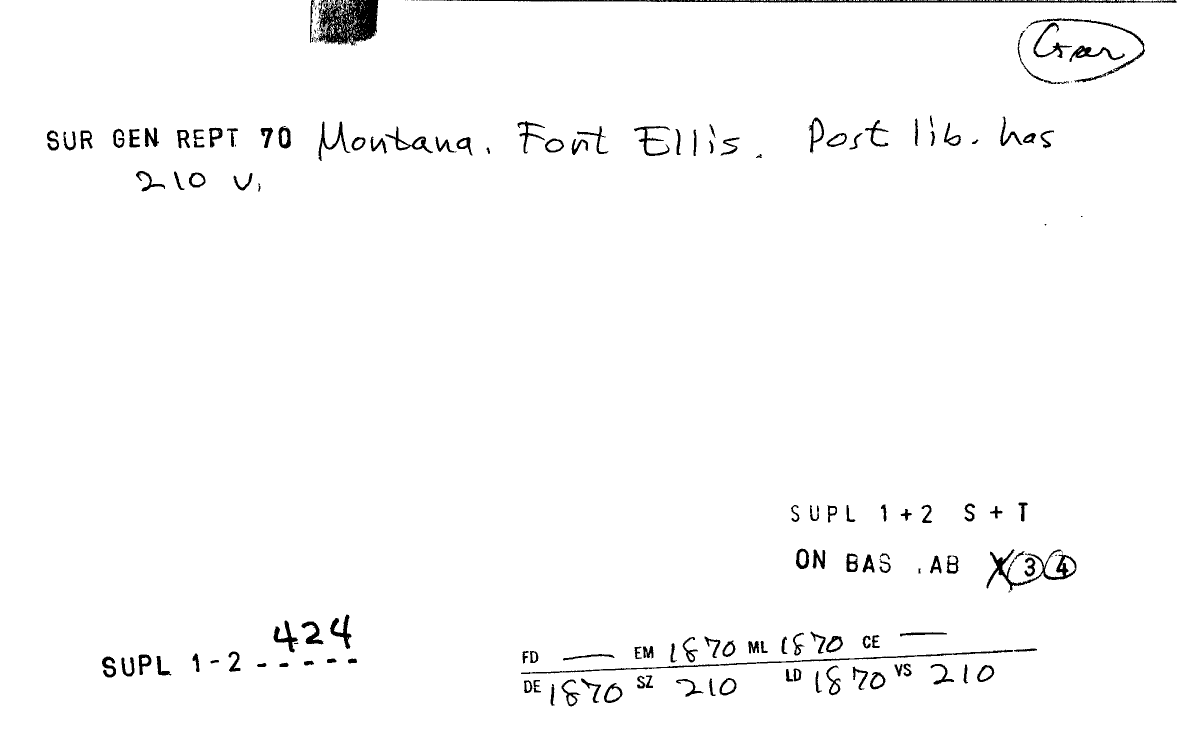 SUR GEN REPT 70 Montana. Fort Ellis. Post lib. has
210 v.
SUPL 1+2 S+T
ON BAS . AB X 3 4
424
SUPL 1-2 -----
FD — EM 1870 ML 1870 CE —
DE 1870 SZ 210 LD 1870 VS 210